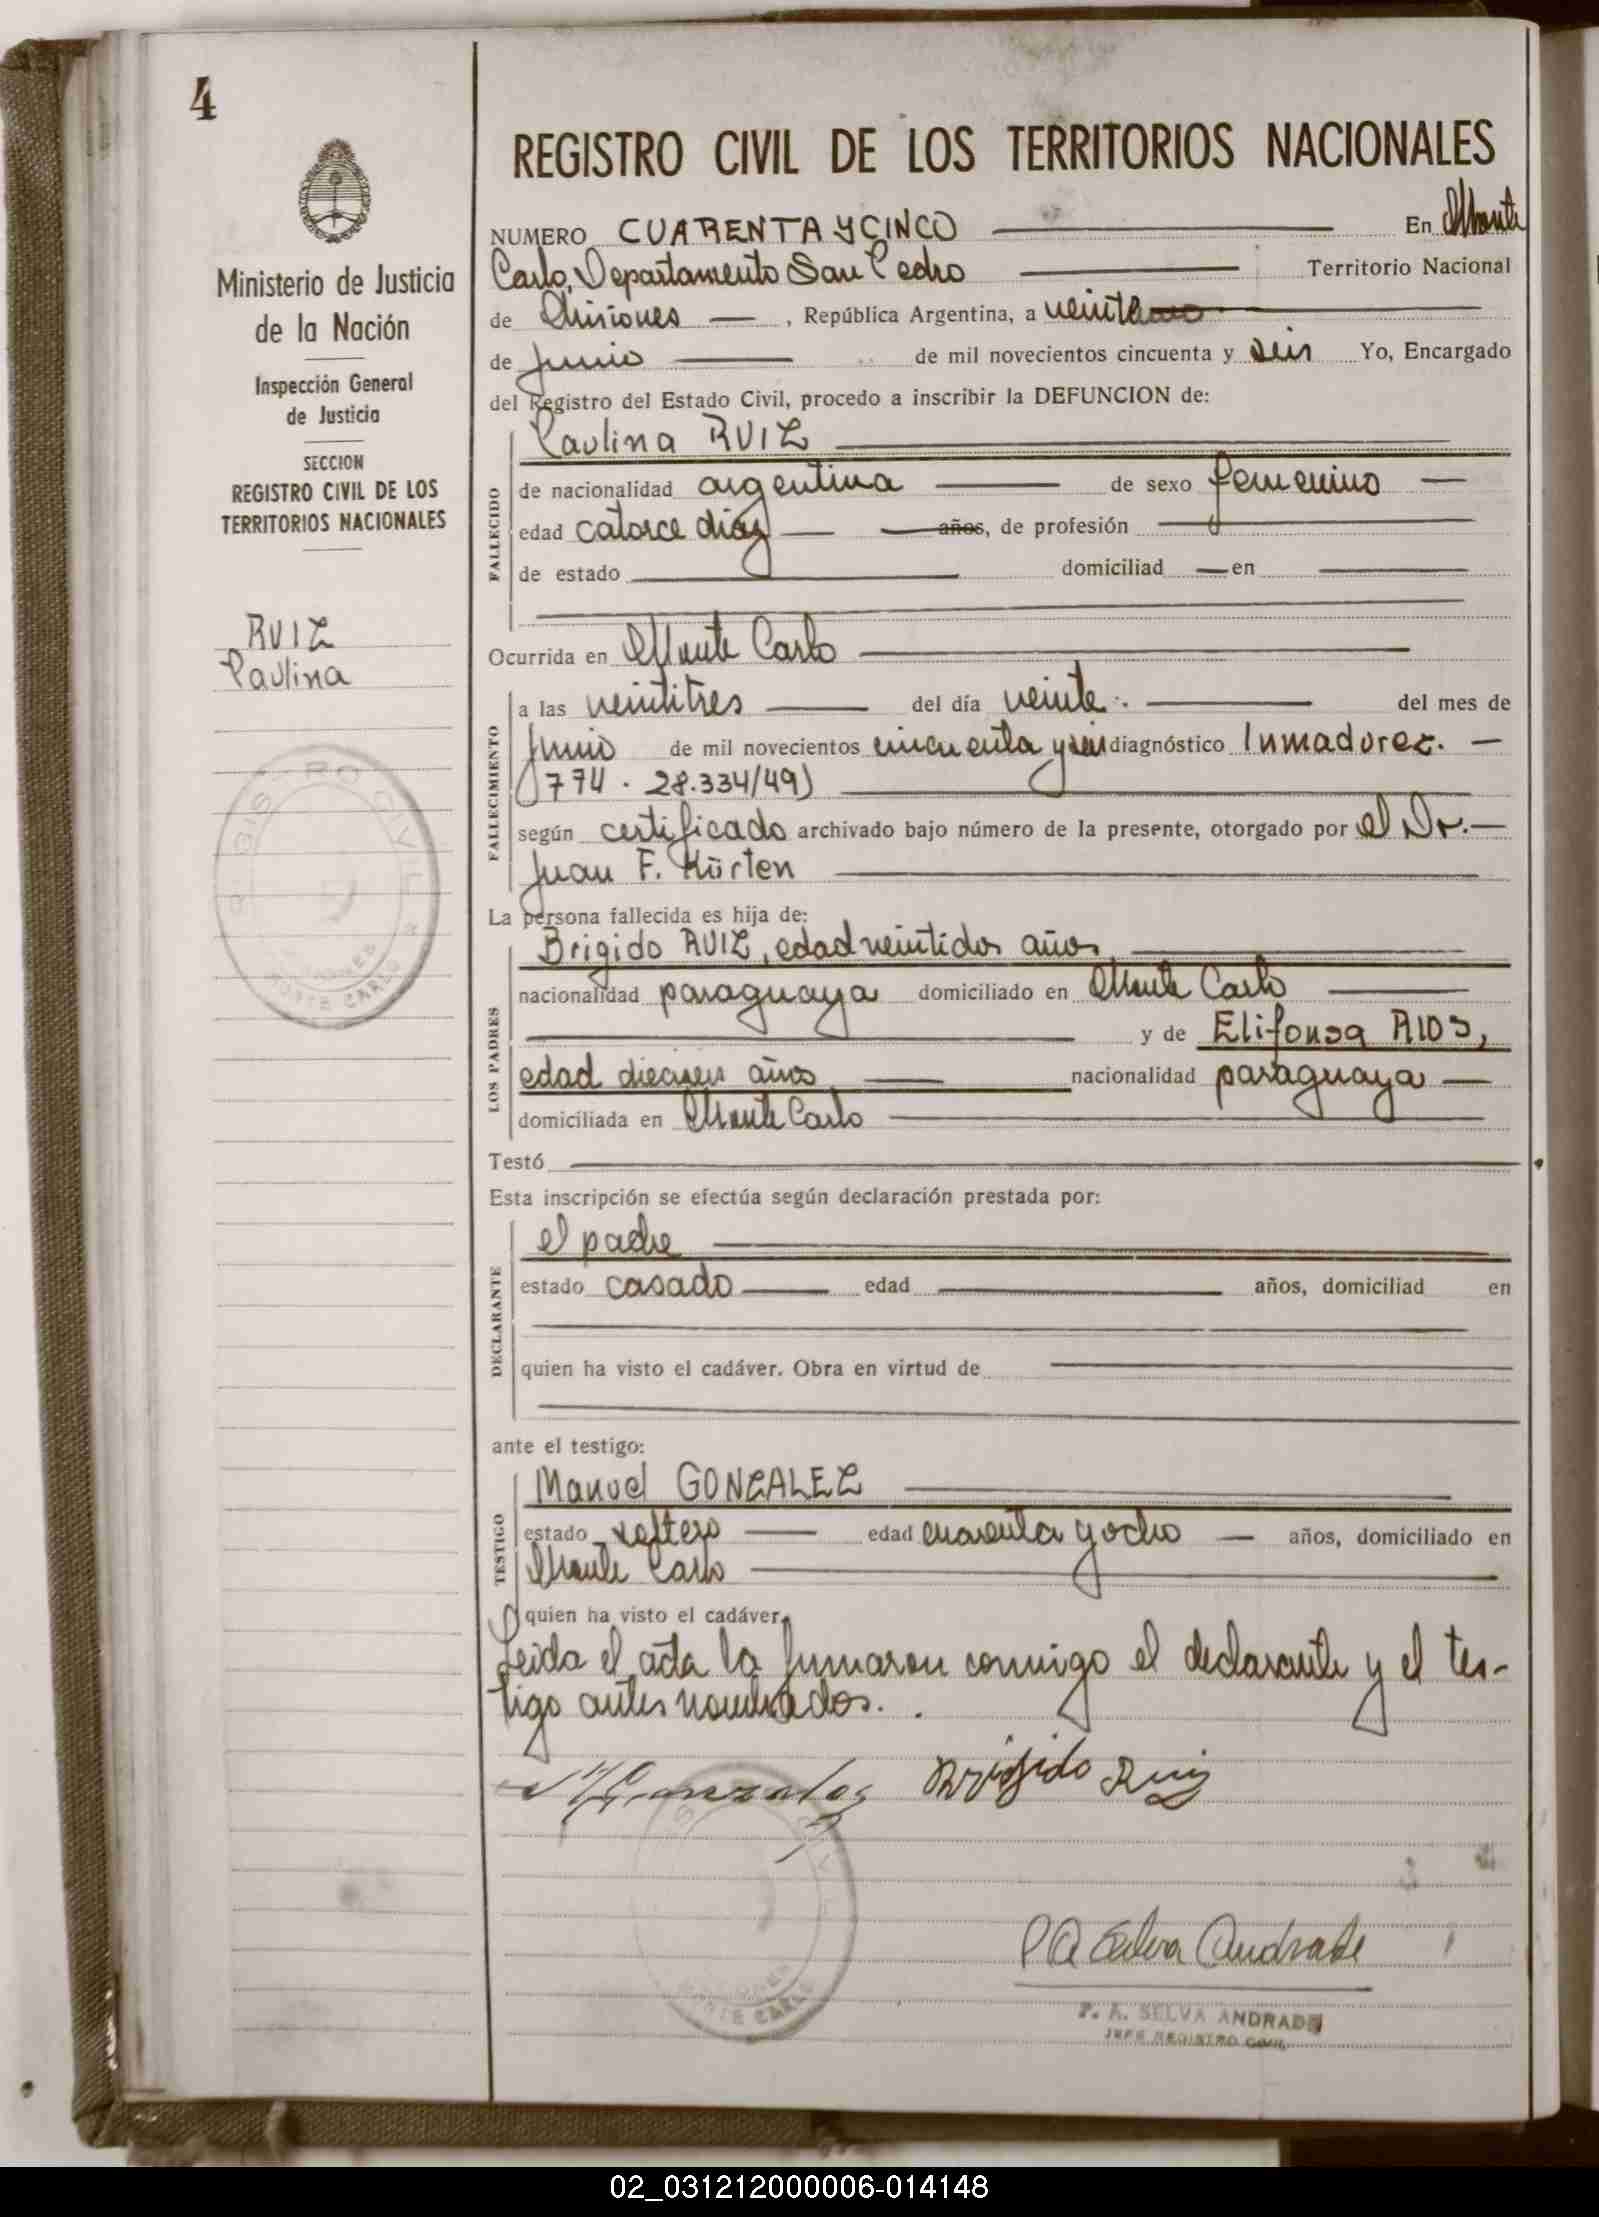 4
Ministerio de Justicia
de la Nación
Inspección General
de Justicia
SECCION
REGISTRO CIVIL DE LOS
TERRITORIOS NACIONALES
RUIZ
Paulina
REGISTRO CIVIL
MISIONES
MONTE CARLO
REGISTRO CIVIL DE LOS TERRITORIOS NACIONALES
NUMERO CUARENTA Y CINCO En Monte
Carlo, Departamento San Pedro Territorio Nacional
de Misiones , República Argentina, a veinte
de Junio de mil novecientos cincuenta y seis Yo, Encargado
del Registro del Estado Civil, procedo a inscribir la DEFUNCION de:
Paulina RUIZ
FALLECIDO
de nacionalidad argentina de sexo femenino
edad catorce días años, de profesión
de estado domiciliad en
Ocurrida en Monte Carlo
FALLECIMIENTO
a las veintitres del día veinte. del mes de
Junio de mil novecientos cincuenta y seis diagnóstico Inmadurez.
(774 . 28.334/49)
según certificado archivado bajo número de la presente, otorgado por el Dr.
Juan F. Kürten
La persona fallecida es hija de:
LOS PADRES
Brigido RUIZ, edad veintidos años
nacionalidad paraguaya domiciliado en Monte Carlo
y de Elifonsa RIOS,
edad dieciseis años nacionalidad paraguaya
domiciliada en Monte Carlo
Testó
Esta inscripción se efectúa según declaración prestada por:
DECLARANTE
el padre
estado casado edad años, domiciliad en
quien ha visto el cadáver. Obra en virtud de
ante el testigo:
TESTIGO
Manuel GONZALEZ
estado soltero edad cuarenta y ocho años, domiciliado en
Monte Carlo
quien ha visto el cadáver.
Leida el acta la firmaron conmigo el declarante y el tes-
tigo antes nombrados.
M Gonzalez Brigido Ruiz
MISIONES
MONTE CARLO
P A Selva Andrade
P. A. SELVA ANDRADE
JEFE REGISTRO CIVIL
02_031212000006-014148